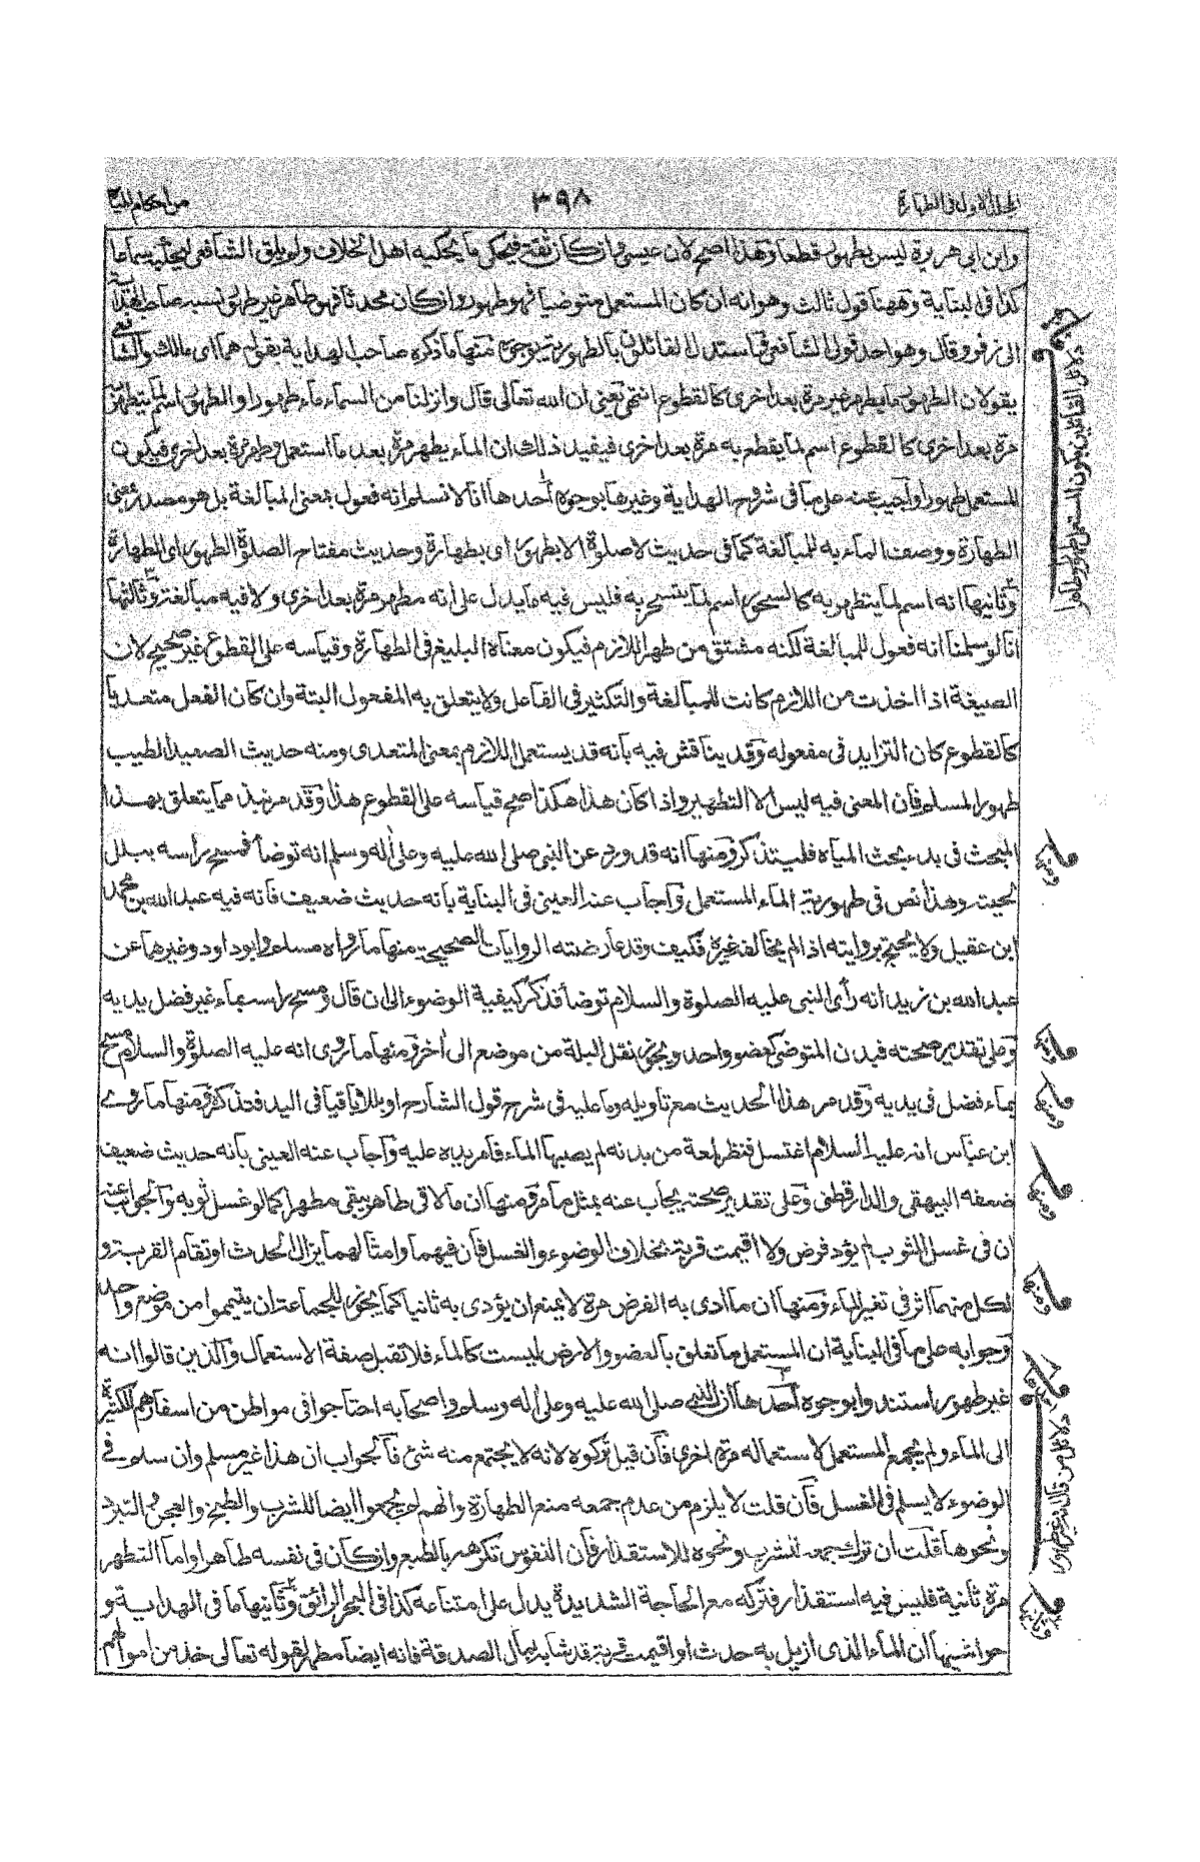 الجلد الاول في الطهارة
٣٩٨
من احكام المياه
وابن ابي هريرة ليس بطهور قطعا وهذا اصح لان عيسى وان كان ثقة فيحكى ما يحكيه اهل الخلاف ولم يلق الشافعي ليحكيه سماعا
كذا في البناية وههنا قول ثالث وهو انه ان كان المستعمل متوضيا فهو طهور وان كان محدثا فهو طاهر غير طهور نسبه صاحب الهداية
الى زفر وقال وهو احد قولي الشافعي فاستدل القائلون بالطهورية بوجوه منها ما ذكره صاحب الهداية بقوله هما اي مالك والشافعي
يقولان الطهور ما يطهر غيره مرة بعد اخرى كالقطوع انتهى يعني ان الله تعالى قال وانزلنا من السماء ماء طهورا والطهور اسم لما يتطهر به
مرة بعد اخرى كالقطوع اسم لما يقطع به مرة بعد اخرى فيفيد ذلك ان الماء يطهر مرة بعد ما استعمل وطهر مرة بعد اخرى فيكون
المستعمل طهورا واجيب عنه على ما في شروح الهداية وغيرها بوجوه احدها انا لا نسلم انه فعول بمعنى المبالغة بل هو مصدر بمعنى
الطهارة ووصف الماء به للمبالغة كما في حديث لا صلوة الا بطهور اي بطهارة وحديث مفتاح الصلوة الطهور اي الطهارة
وثانيها انه اسم لما يتطهر به كالسحور اسم لما يتسحر به فليس فيه ما يدل على انه مطهر مرة بعد اخرى ولا فيه مبالغة وثالثها
انا لو سلمنا انه فعول للمبالغة لكنه مشتق من طهر اللازم فيكون معناه البليغ في الطهارة وقياسه على القطوع غير صحيح لان
الصيغة اذا اخذت من اللازم كانت للمبالغة والتكثير في الفاعل ولا يتعلق به المفعول البتة وان كان الفعل متعديا
كالقطوع كان التزايد في مفعوله وقد يناقش فيه بانه قد يستعمل اللازم بمعنى المتعدي ومنه حديث الصعيد الطيب
طهور المسلم فان المعنى فيه ليس الا التطهير واذا كان هذا هكذا صح قياسه على القطوع هذا وقد مر نبذ مما يتعلق بهذا
المبحث في بدء بحث المياه فليتذكر ومنها انه قد ورد عن النبي صلى الله عليه وعلى اله وسلم انه توضأ فمسح راسه ببلل
لحيته وهذا نص في طهورية الماء المستعمل واجاب عنه العيني في البناية بانه حديث ضعيف فانه فيه عبد الله بن محمد
ابن عقيل ولا يحتج بروايته اذا لم يخالفه غيره فكيف وقد عارضته الروايات الصحيحة منها ما رواه مسلم وابو داود وغيرهما عن
عبد الله بن زيد انه رأى النبي عليه الصلوة والسلام توضأ فذكر كيفية الوضوء الى ان قال ومسح راسه بماء غير فضل يديه
وعلى تقدير صحته فبدن المتوضي كعضو واحد ويجوز نقل البلة من موضع الى اخر ومنها ما روى انه عليه الصلوة والسلام مسح
بماء فضل في يديه وقد مر هذا الحديث مع تاويله وما عليه في شرح قول الشارح او بللا باقيا في اليد فتذكره ومنها ما روى
ابن عباس انه عليه السلام اغتسل فنظر لمعة من بدنه لم يصبها الماء فامر يده عليه واجاب عنه العيني بانه حديث ضعيف
ضعفه البيهقي والدارقطني وعلى تقدير صحته يجاب عنه بمثل ما مر ومنها ان ما لاقى طاهر يبقى مطهرا كما لو غسل ثوبه والجواب عنه
ان في غسل الثوب لم يؤد فرض ولا اقيمت قربة بخلاف الوضوء والغسل فان فيهما وامثالهما يزال الحدث او تقام القربة و
لكل منهما اثر في تغير الماء ومنها ان ما ادى به الفرض مرة لا يمنع ان يؤدى به ثانيا كما يجوز للجماعة ان يتيمموا من موضع واحد
وجوابه على ما في البناية ان المستعمل ما تعلق بالعضو والارض ليست كالماء فلا تقبل صفة الاستعمال والذين قالوا انه
غير طهور استندوا بوجوه احدها ان النبي صلى الله عليه وعلى اله وسلم واصحابه احتاجوا في مواطن من اسفارهم الكثيرة
الى الماء ولم يجمع المستعمل لاستعماله مرة اخرى فان قيل تركوه لانه لا يجتمع منه شئ فالجواب ان هذا غير مسلم وان سلم في
الوضوء لا يسلم في الغسل فان قلت لا يلزم من عدم جمعه منع الطهارة وانهم لم يجمعوا ايضا للشرب والطبخ والعجن والتبرد
ونحوها قلت ان ترك جمعه للشرب ونحوه للاستقذار فان النفوس تكرهه بالطبع وان كان في نفسه طاهرا واما التطهر
مرة ثانية فليس فيه استقذار فتركه مع الحاجة الشديدة يدل على امتناعه كذا في البحر الرائق وثانيها ما في الهداية و
حواشيها ان الماء الذي ازيل به حدث او اقيمت قربة قد شابه بمال الصدقة فانه ايضا مطهر لقوله تعالى خذ من اموالهم
دلائل القائلين بكون المستعمل طهورا
ومنها
ومنها
ومنها
ومنها
دلائل من قال انه غير طهور
وثانيها